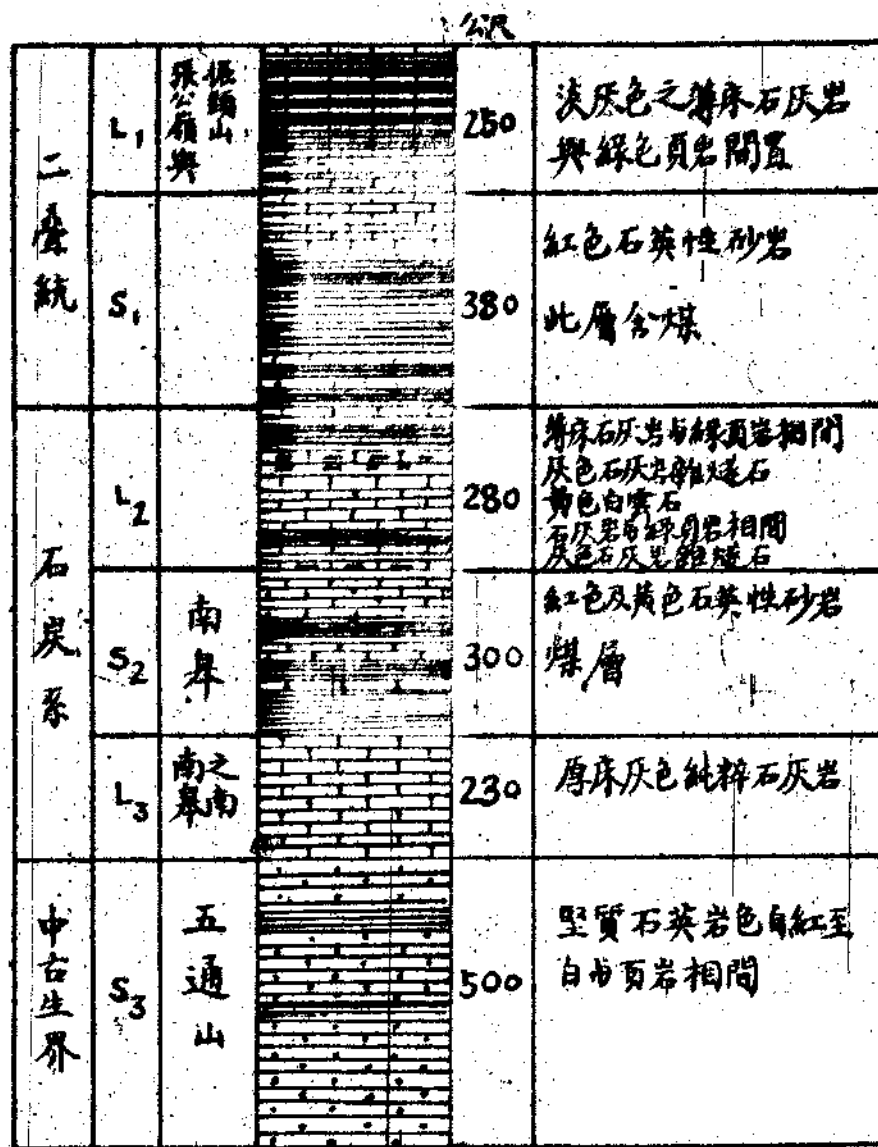 公尺
二疊統
L₁
張公嶺與
山
250
淡灰色之薄床石灰岩
與綠色頁岩間置
S₁
380
紅色石英性砂岩
此層含煤
石炭系
L₂
280
薄床石灰岩与綠頁岩相間
灰色石灰岩雜燧石
黃色白雲石
石灰岩与綠頁岩相間
灰色石灰岩雜燧石
S₂
南皋
300
紅色及黃色石英性砂岩
煤層
L₃
南皋
之南
230
厚床灰色純粹石灰岩
中古生界
S₃
五通山
500
堅質石英岩色自紅至
白与頁岩相間